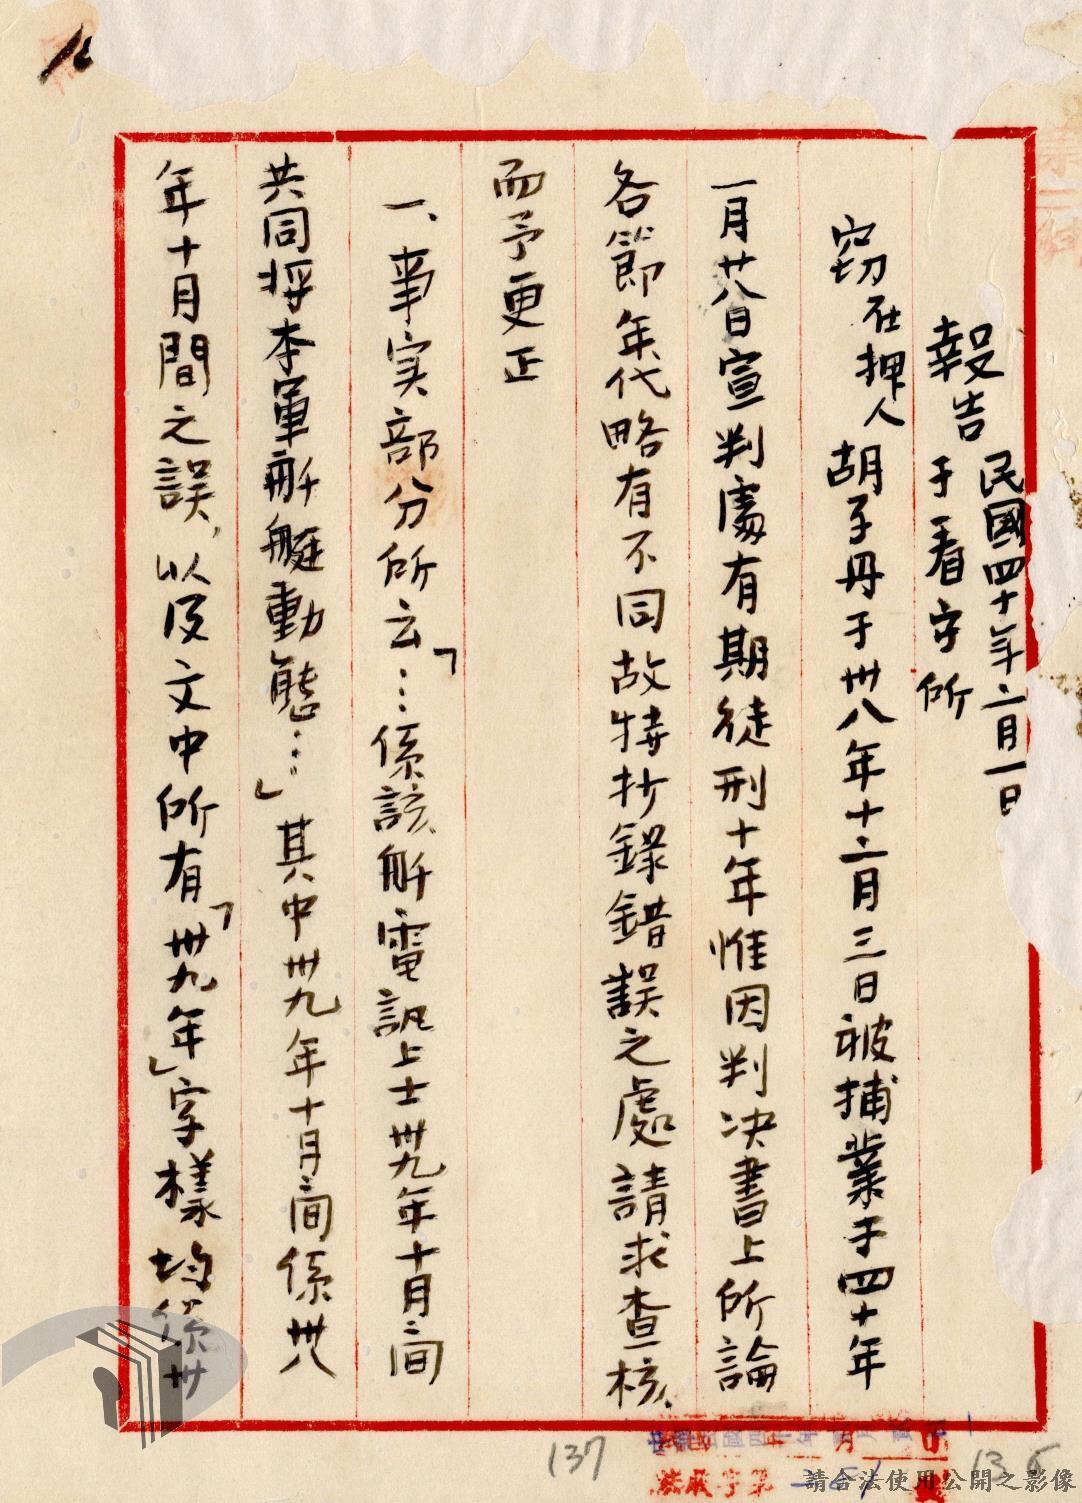 報告 民國四十年二月一日
于看守所
窃在押人胡子丹于卅八年十二月三日被捕業于四十年
一月廿八日宣判處有期徒刑十年惟因判決書上所論
各節年代略有不同故特抄錄錯誤之處請求查核
而予更正
一、事实部分所云「…係該舧電訊上士卅九年十月间
共同将本軍舧艇動態…」其中卅九年十月间係卅八
年十月間之誤，以及文中所有「卅九年」字樣均係卅
137
136
請合法使用公開之影像